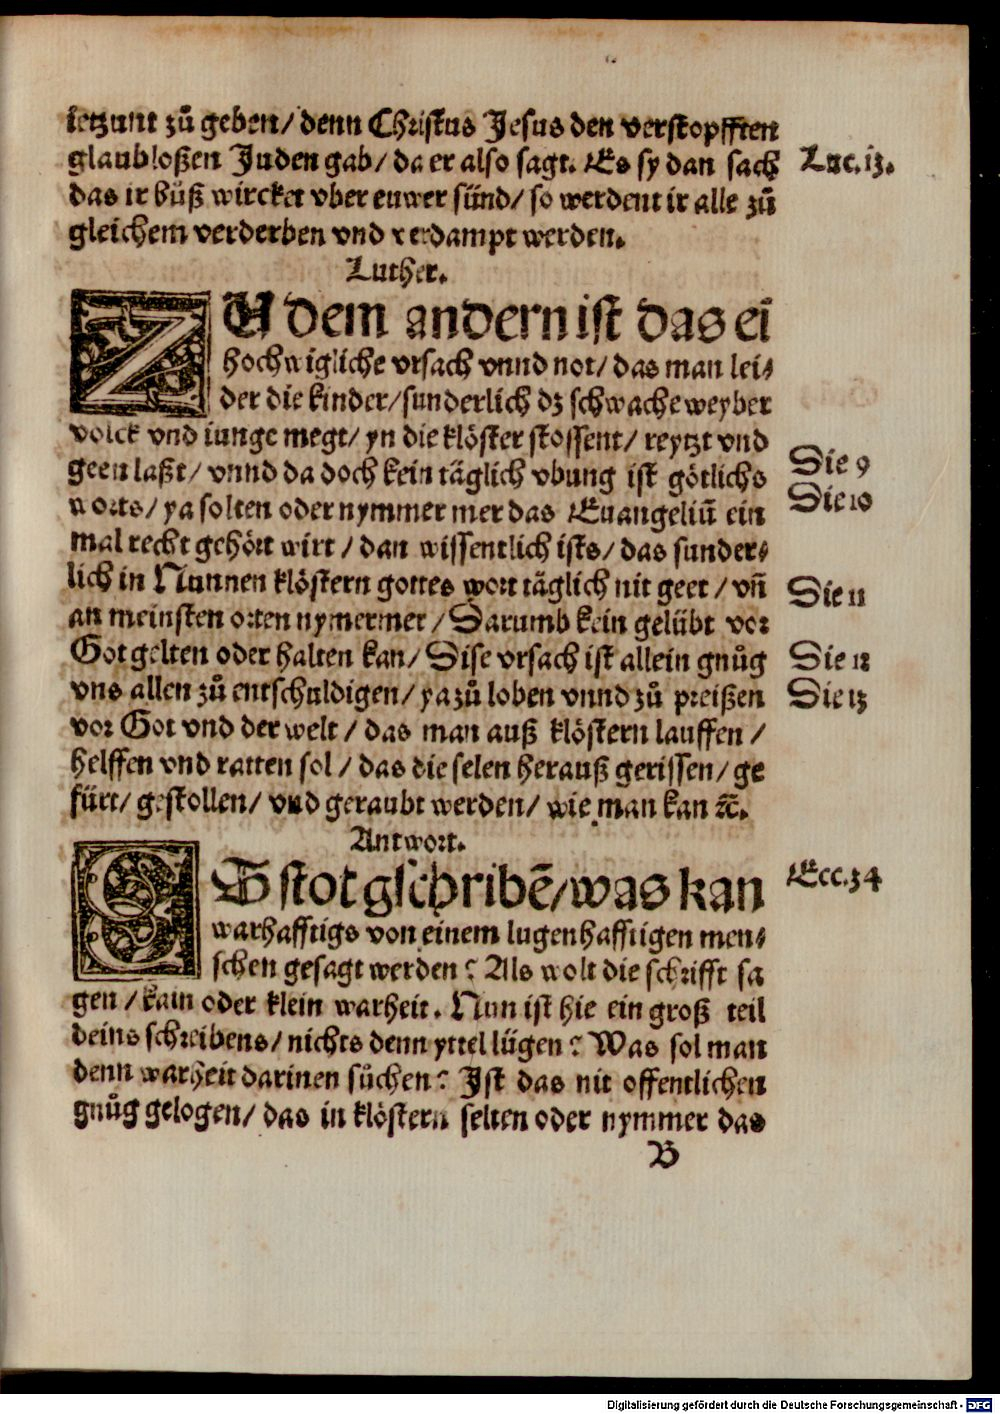 ietzunt zuͦ geben/ denn Christus Jesus den verstopfften
glaubloßen Juden gab/ da er also sagt. Es sy dan sach
Luc. iz.
das ir buͦß wircket vber euwer sünd/ so werdent ir alle zuͦ
gleichem verderben vnd verdampt werden.
Luther.
ZU dem andern ist das ei
hochwigliche vrsach vnnd not/ das man lei⸗
der die kinder/ sunderlich dz schwache weyber
volck vnd iunge megt/ yn die klöster stossent/ reytzt vnd
Die 9
geen laßt/ vnnd da doch kein täglich vbung ist götlichs
Die 10
worts/ ya solten oder nymmer mer das Euangeliū ein
mal recht gehört wirt/ dan wissentlich ists/ das sunder⸗
lich in Nunnen klöstern gottes wort täglich nit geet/ vn̄
Die 11
an meinsten orten nymermer/ Darumb kein gelübt vor
Got gelten oder halten kan/ Dise vrsach ist allein gnuͦg
Die 12
vns allen zuͦ entschuldigen/ ya zuͦ loben vnnd zuͦ preißen
Die 13
vor Got vnd der welt/ das man auß klöstern lauffen/
helffen vnd ratten sol/ das die selen herauß gerissen/ ge
fürt/ gestollen/ vnd geraubt werden/ wie man kan ꝛc̄.
Antwort.
ES stot gschribē/ was kan
Ecc. 34
warhafftigs von einem lugenhafftigen men⸗
schen gesagt werden? Als wolt die schrifft sa
gen/ kain oder klein warheit. Nun ist hie ein groß teil
deins schreibens/ nichts denn yttel lügen? Was sol man
denn warheit darinen suͦchen? Ist das nit offentlichen
gnuͦg gelogen/ das in klöstern selten oder nymmer das
B
Digitalisierung gefördert durch die Deutsche Forschungsgemeinschaft - DFG